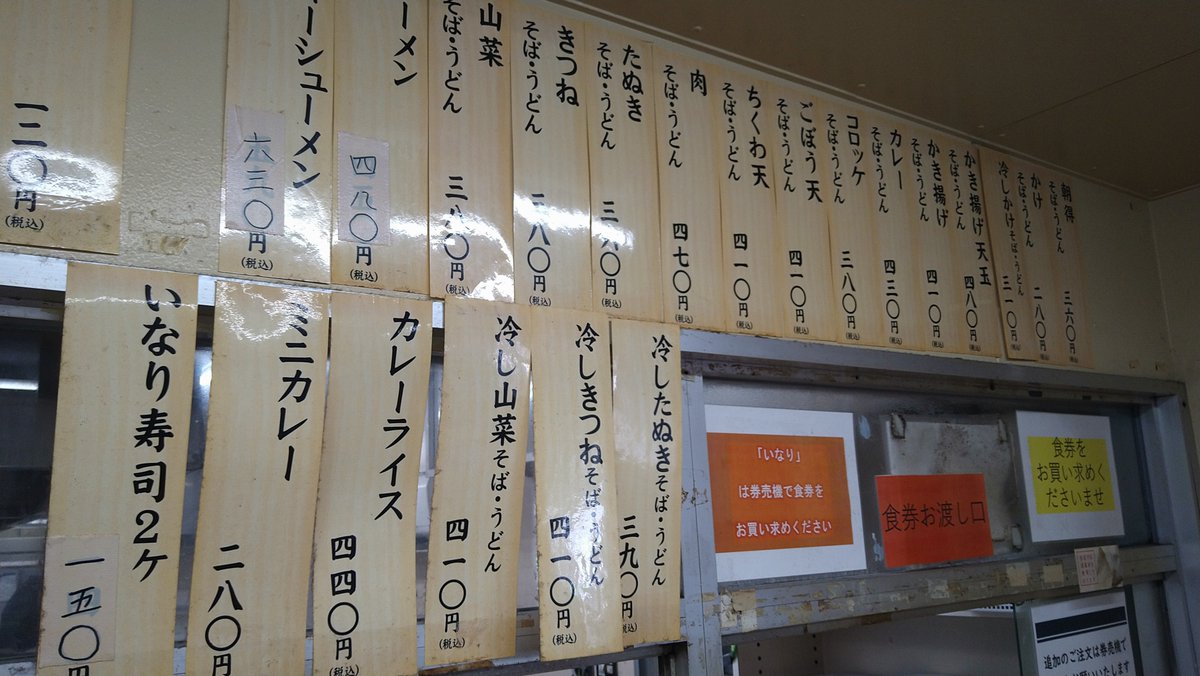 朝得
そば・うどん
三六〇円(税込)
かけ
そば・うどん
二八〇円(税込)
冷しかけそば・うどん
三一〇円(税込)
かき揚げ天玉
そば・うどん
四八〇円(税込)
かき揚げ
そば・うどん
四一〇円(税込)
カレー
そば・うどん
四三〇円(税込)
コロッケ
そば・うどん
三八〇円(税込)
ごぼう天
そば・うどん
四一〇円(税込)
ちくわ天
そば・うどん
四一〇円(税込)
肉
そば・うどん
四七〇円(税込)
たぬき
そば・うどん
三六〇円(税込)
きつね
そば・うどん
八〇円(税込)
山菜
そば・うどん
三八〇円(税込)
ーメン
四八〇円(税込)
ーシューメン
六三〇円(税込)
一二〇円(税込)
冷したぬきそば・うどん
三九〇円(税込)
冷しきつねそば・うどん
四一〇円(税込)
冷し山菜そば・うどん
四一〇円(税込)
カレーライス
四四〇円(税込)
ミニカレー
二八〇円
いなり寿司2ケ
一五〇円
「いなり」
は券売機で食券を
お買い求めください
食券お渡し口
食券を
お買い求めく
ださいませ
追加のご注文は券売機で
お願いいたします